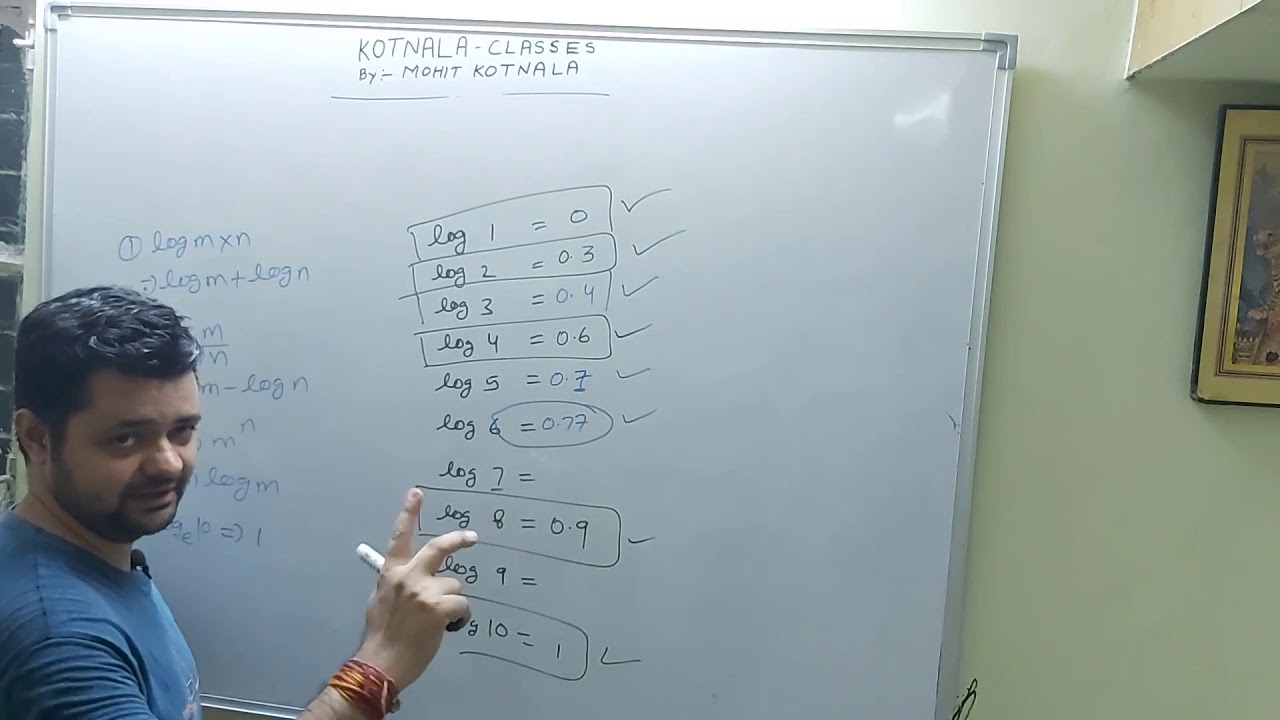 KOTNALA-CLASSES
By:- MOHIT KOTNALA
① log m×n
⇒ log m + log n
m
n
m - log n
m^n
log m
10 ⇒ 1
log 1 = 0
log 2 = 0.3
log 3 = 0.4
log 4 = 0.6
log 5 = 0.7
log 6 = 0.77
log 7 =
log 8 = 0.9
log 9 =
g 10 = 1